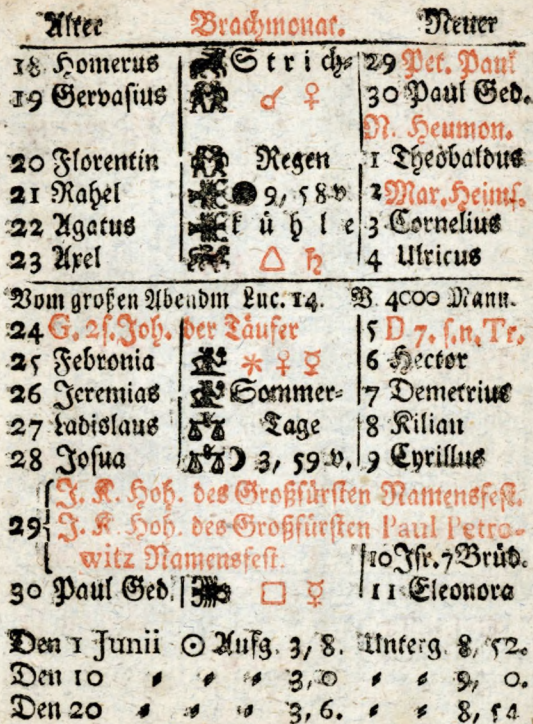 Alter Brachmonat. Neuer
18 Homerus Strich- 29 Pet. Paul
19 Gervasius ☌ ♀ 30 Paul Ged.
N. Heumon.
20 Florentin Regen 1 Theobaldus
21 Rahel ● 9, 58 v 2 Mar. Heims.
22 Agatus kühle 3 Cornelius
23 Axel △ ♄ 4 Ulricus
Vom großen Abendm Luc. 14. V. 4000 Mann.
24 G. 2 s. Joh. der Täufer 5 D 7. s. n. Tr.
25 Febronia ⚹ ♀ ☿ 6 Hector
26 Jeremias Sommer- 7 Demetrius
27 Ladislaus Tage 8 Kilian
28 Josua ☽ 3, 59 v. 9 Cyrillus
J. K. Hoh. des Großfürsten Namensfest.
29 J. K. Hoh. des Großfürsten Paul Petro-
witz Namensfest. 10 Isr. 7 Brüd.
30 Paul Ged. □ ☿ 11 Eleonora
Den 1 Junii ☉ Aufg. 3, 8. Unterg. 8, 52.
Den 10 " " " 3, 0 " " 9, 0.
Den 20 " " " 3, 6. " " 8, 54